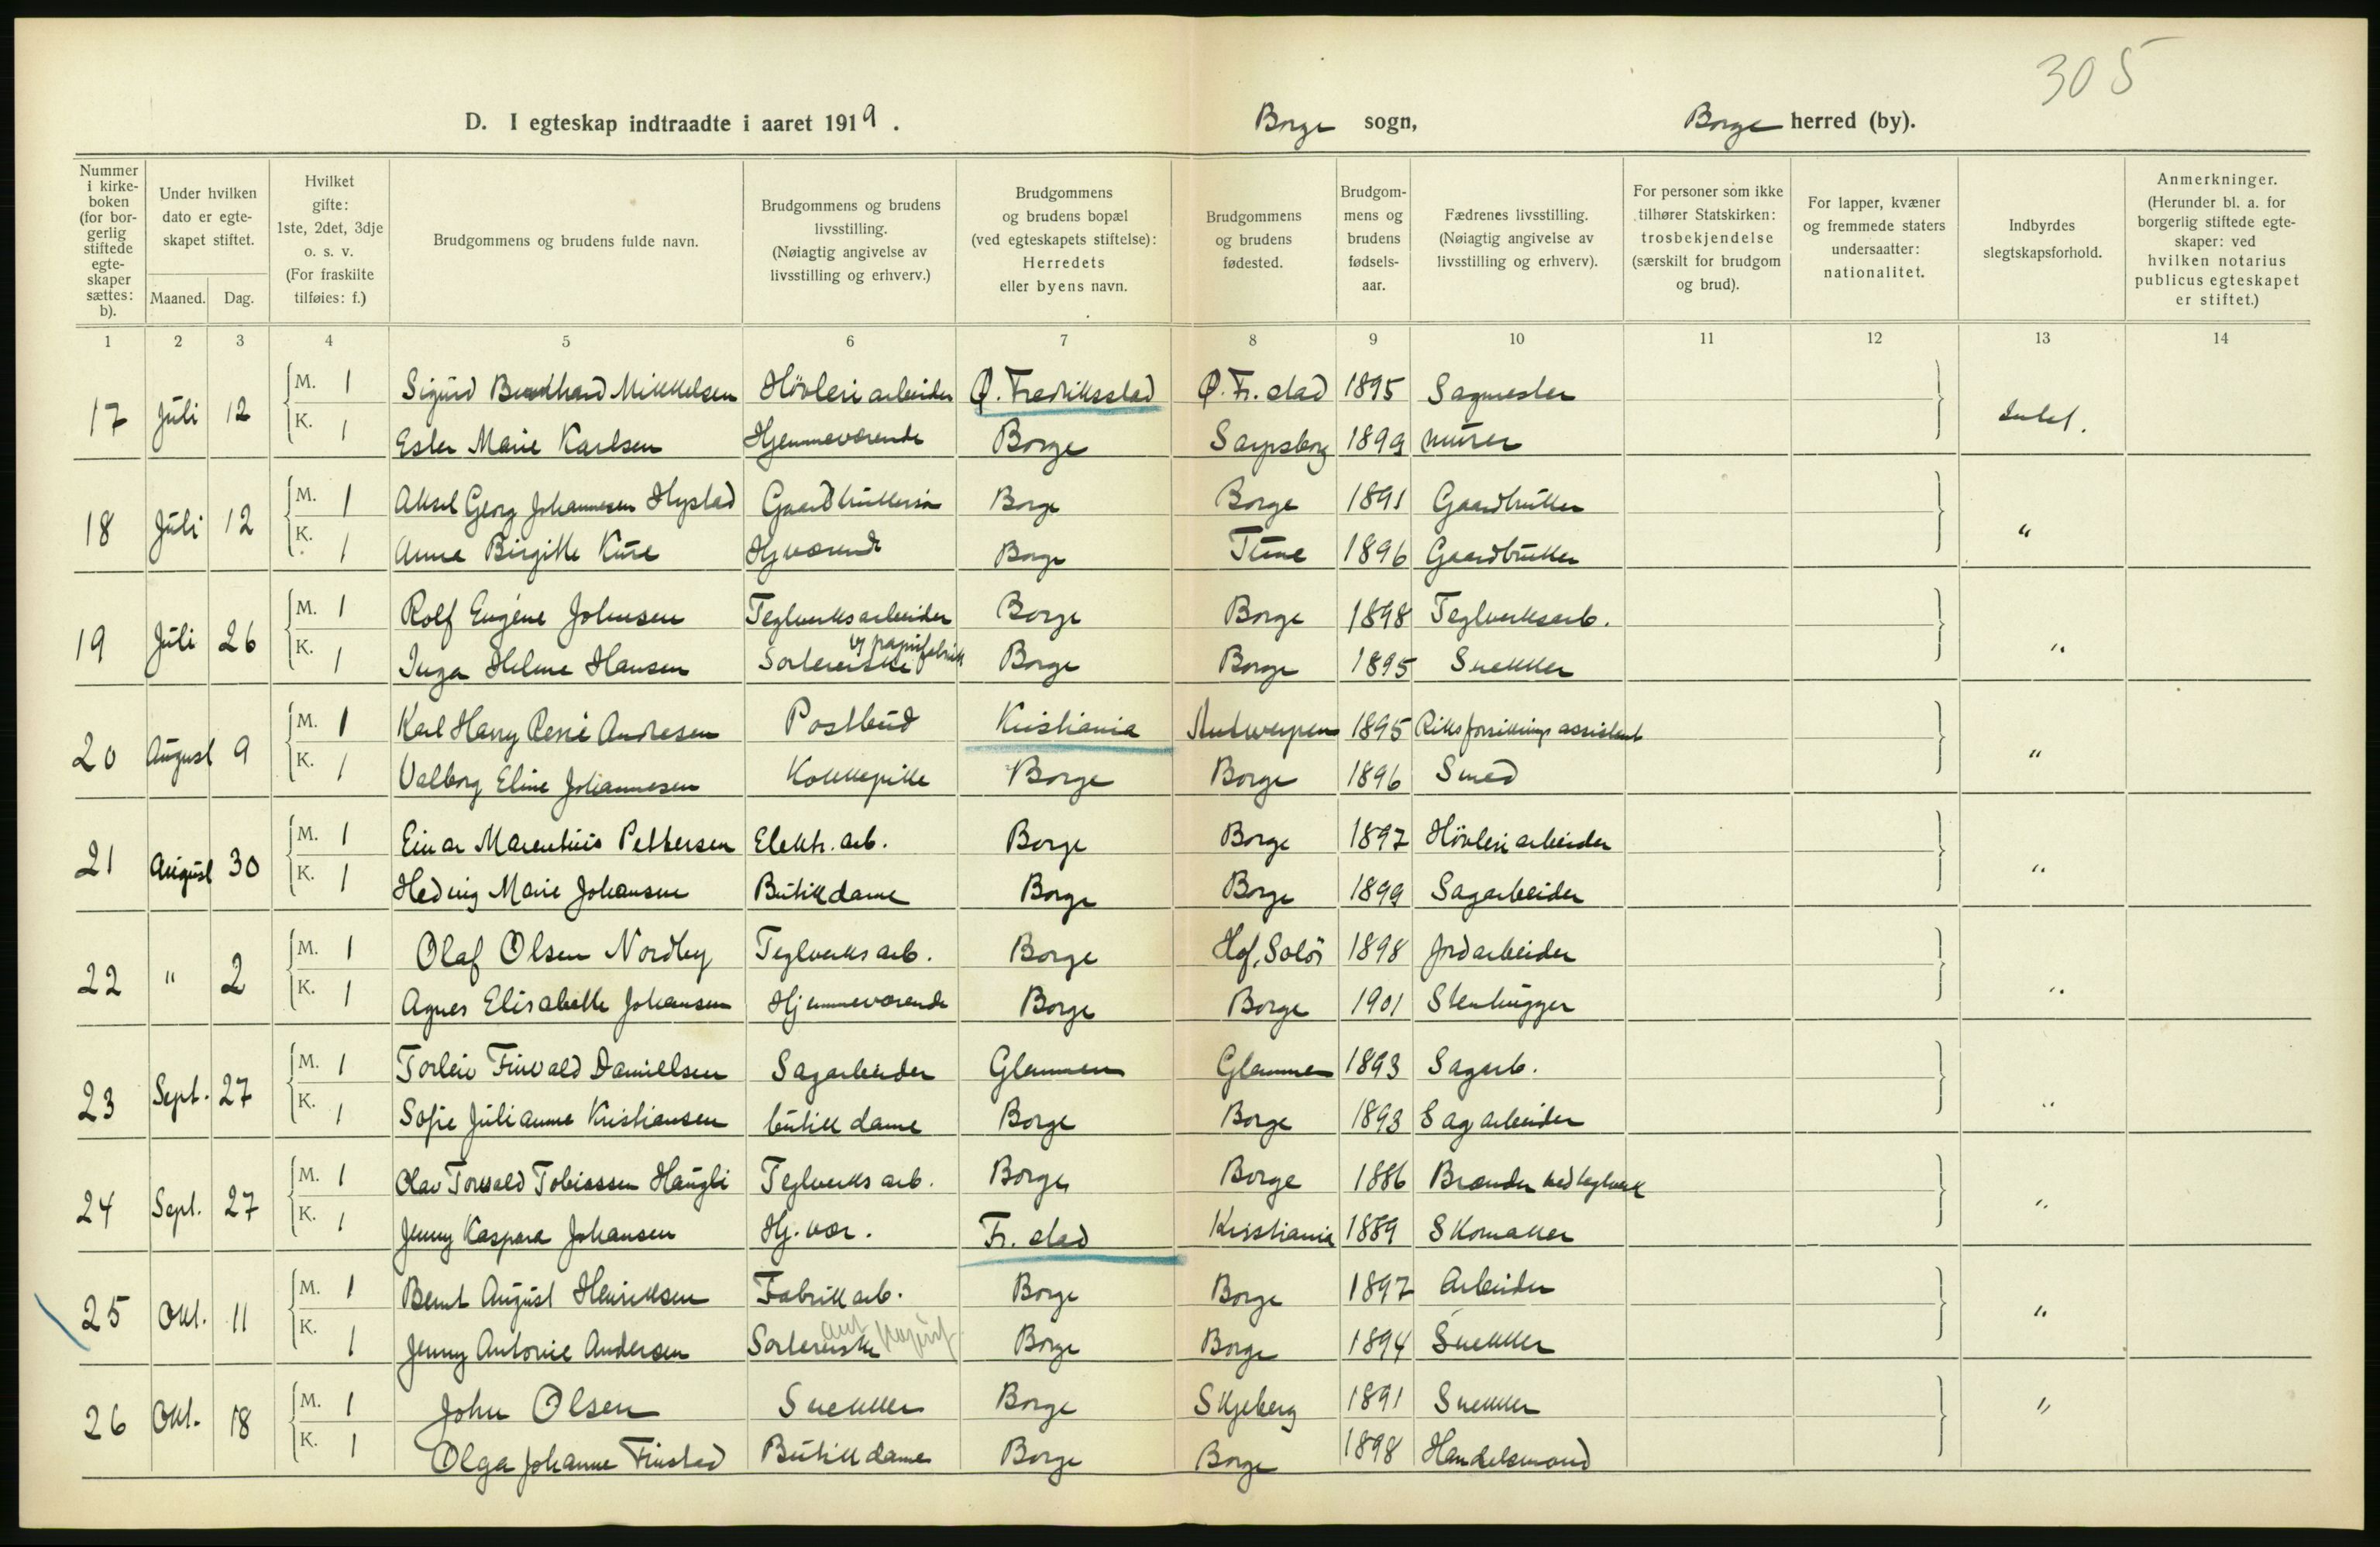 305
D. I egteskap indtraadte i aaret 1919. Borge sogn, Borge herred (by).
Nummer i kirke-boken (for bor-gerlig stiftede egte-skaper sættes: b).
Under hvilken dato er egte-skapet stiftet.
Maaned. Dag.
Hvilket gifte: 1ste, 2det, 3dje o. s. v. (For fraskilte tilføies: f.)
Brudgommens og brudens fulde navn.
Brudgommens og brudens livsstilling. (Nøiagtig angivelse av livsstilling og erhverv.)
Brudgommens og brudens bopæl (ved egteskapets stiftelse): Herredets eller byens navn.
Brudgommens og brudens fødested.
Brudgom-mens og brudens fødsels-aar.
Fædrenes livsstilling. (Nøiagtig angivelse av livsstilling og erhverv).
For personer som ikke tilhører Statskirken: trosbekjendelse (særskilt for brudgom og brud).
For lapper, kvæner og fremmede staters undersaatter: nationalitet.
Indbyrdes slegtskapsforhold.
Anmerkninger. (Herunder bl. a. for borgerlig stiftede egte-skaper: ved hvilken notarius publicus egteskapet er stiftet.)
1 2 3 4 5 6 7 8 9 10 11 12 13 14
17 Juli 12 M. 1 Sigurd Bernhard Mikkelsen Høvleriarbeider Ø. Fredriksstad Ø. Fr.stad 1895 Sagmester
K. 1 Ester Marie Karlsen Hjemmeværende Borge Sarpsborg 1899 murer Intet.
18 Juli 12 M. 1 Aksel Georg Johannesen Hystad Borge Borge 1891 Gaardbruker
K. 1 Anna Birgitte Kure Hjværende Borge Tune 1896 Gaardbruker "
19 Juli 26 M. 1 Rolf Eugéne Johnsen Teglverksarbeider Borge Borge 1898 Teglverksarb.
K. 1 Inga Helene Hansen Sortererske v papirfabrik Borge Borge 1895 Snekker "
20 August 9 M. 1 Karl Harry René Andresen Postbud Kristiania Antwerpen 1895 Riksforsikrings assistent
K. 1 Valborg Eline Johannesen Kokkepike Borge Borge 1896 Smed "
21 August 30 M. 1 Einar Marentius Pettersen Elektr. arb. Borge Borge 1897 Høvleriarbeider
K. 1 Hedvig Marie Johansen Butikdame Borge Borge 1899 Sagarbeider "
22 " 2 M. 1 Olaf Olsen Nordby Teglverksarb. Borge Hof, Solør 1898 Jordarbeider
K. 1 Agnes Elisabeth Johansen Hjemmeværende Borge Borge 1901 Stenhugger "
23 Sept. 27 M. 1 Torleiv Finvald Daniellsen Sagarbeider Glemmen Glemmen 1893 Sagarb.
K. 1 Sofie Julianne Kristiansen butikdame Borge Borge 1893 Sagarbeider "
24 Sept. 27 M. 1 Olav Torvald Tobiassen Haugli Teglverksarb. Borge Borge 1886 Brænder ved teglverk
K. 1 Jenny Kaspara Johansen Hj. vær. Fr. stad Kristiania 1889 Skomaker "
25 Okt. 11 M. 1 Bernt August Henriksen Fabrikarb. Borge Borge 1897 Arbeider
K. 1 Jenny Antonie Andersen Sortererske Borge Borge 1894 Snekker "
26 Okt. 18 M. 1 John Olsen Snekker Borge Skjeberg 1891 Snekker
K. 1 Olga Johanne Finstad Butikdame Borge Borge 1898 Handelsmand "